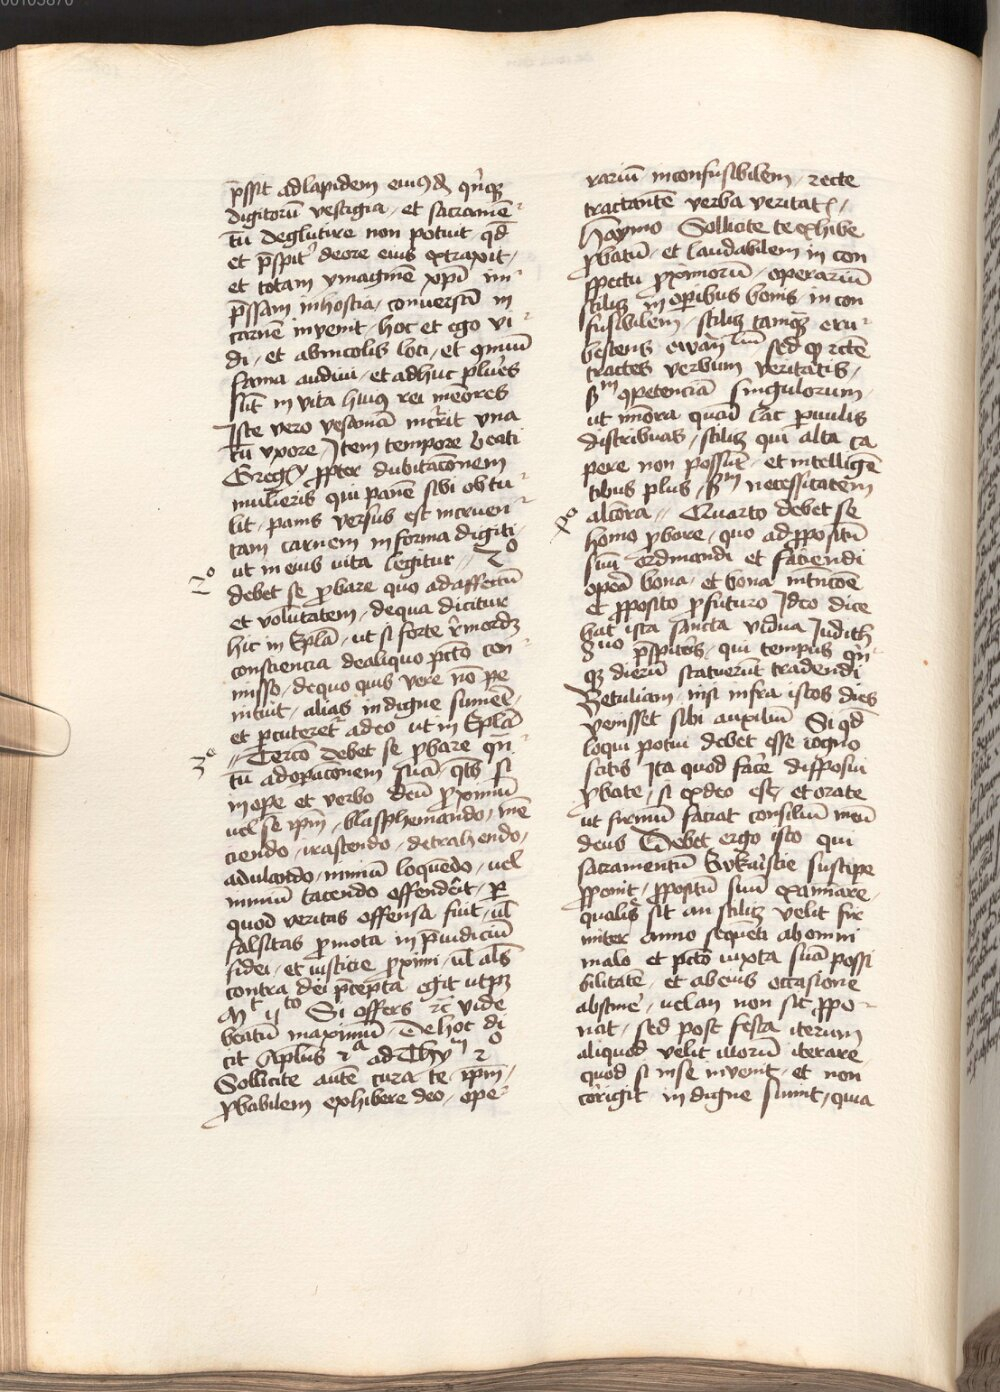 p̄ssit ad lapidem eiusdē quīqȝ
digitorū vestigia / et sacramē⸗
tū deglutire non potuit / qd̄
et p̄spitˀ de ore eius extraxit /
et totam ymaginē xp̄i im⸗
p̄ssam in hostia / conuersā in
carnē invenit / hoc et ego vi⸗
di / et ab incolis loci / et cōmunī
fama audiui / et adhuc plures
sūt in vita huiꝰ rei memores
Iste vero vesaniā incˀrit vna
cū vxore / Item tempore beati
Gregˀ ꝓpter dubitacōnem
mulieris qui panē sibi obtu⸗
lit / panis versus est in cruen⸗
tam carnem in forma digiti /
ut in eius vita legitur // 2º
debet se ꝓbare quo ad affectū
et volūtatem / de qua dicitur
hic in Epl̄a / ut si forte r̄mordȝ
consciencia de aliquo pctō con⸗
misso / de quo quis vere nō pe
nituit / alias indigne sumēs /
et pcuteretˀ a deo ut in Epl̄a
// Tercō debet se ꝓbare qn̄
tū ad opacōnem suā / qt̄ʒ si
in ope et verbo deū ꝓximū
uel se ip̄m / blasphemando / mē
ciendo / irascendo / detrahendo /
adulando / nimiū loquendo / uel
nimiū tacendo offenderit / ꝑ
quod veritas offensa fuit / ul̄
falsitas ꝓmota in p̄iudiciū
fidei / et iusticie ꝓximi / ul̄ als̄
contra dei p̄cepta egit ut pȝ
Mt iiᶜᵗᵒ Si offers ꝛc̄ vide
beatū maximū / De hoc di
cit Apl̄us 2ᵃ ad Thyᵐ 2º
Sollicite autē cura te ip̄m /
ꝓbabilem exhibere deo / ope⸗
rariū inconfusibilem / recte
tractantē verba veritatꝭ /
Haymo Sollicite te exhibe
ꝓbatū / et laudabilem in con
spectu ꝓximorū / operariū
scilicȝ in opibus bonis / in con
fusibilem / scilicȝ tamqȝ eru⸗
bescens ewāliū / sed qꝫ rectē
tractes verbum veritatis /
sᵐ ꝯpetenciā singulorum /
ut in ora quasi lac ꝑuulis
distribuas / scilicȝ qui alta ca
pere non possūt / et intelligē
tibus plus / sᵐ necessitatem
alcōra // Quarto debet se
homo ꝓbare / quo ad ꝓpositū
sui ordinandi et faciendi
opera bona / et bona intˀncōe
et ꝓposito ꝓ futuro Ideo dice
bat ista sancta vidua Iudith
duo p̄spitˀis / qui tempus qn̄
qȝ dierū statuerūt tradendi
Betuliam / nisi infra istos dies
venisset sibi auxiliū Si qd̄
loqui potui debet esse cogno
scitis Ita quod face disposui
ꝓbate / si ex deo est / et orate
ut firmū faciat consiliū meū
deus Debet ergo iste qui
sacramentū Eukaristie suscipe
ꝓponit / ꝓpositū suū examinare /
qualis sit an scilicȝ velit fir
miter anno sequēti ab omni
malo et pctō iuxta suā possi
bilitatē / et ab eius occasione
abstinē / uel an non sic ꝓpo⸗
nat / sed post festa iterum
aliquod velit illorū iterare
quod si in se invenit / et non
corrigit indigne sumit / quia
2º
3º
4º